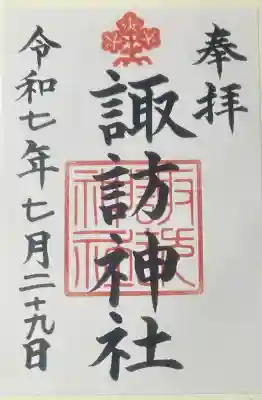 奉拝
諏訪神社
令和七年七月二十九日